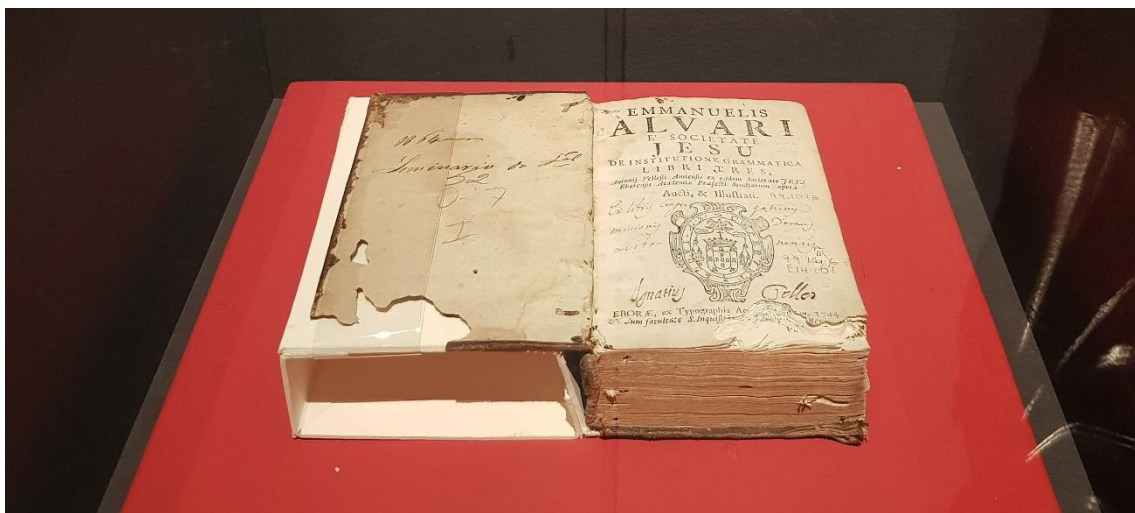 Seminario de
32
0-7
I
EMMANUELIS
ALVARI
E SOCIETATE
JESU
DE INSTITUTIONE GRAMMATICA
LIBRI TRES,
Antonij Vellesij Amiensis ex eadem Societate JESU
Eborensis Academiæ Præfecti Studiorum opera
Aucti, & Illustrati.
Ex libris
Domus
missionis
Ignatius Telles
EBORÆ, ex Typographia
Cum facultate S. Inquisit